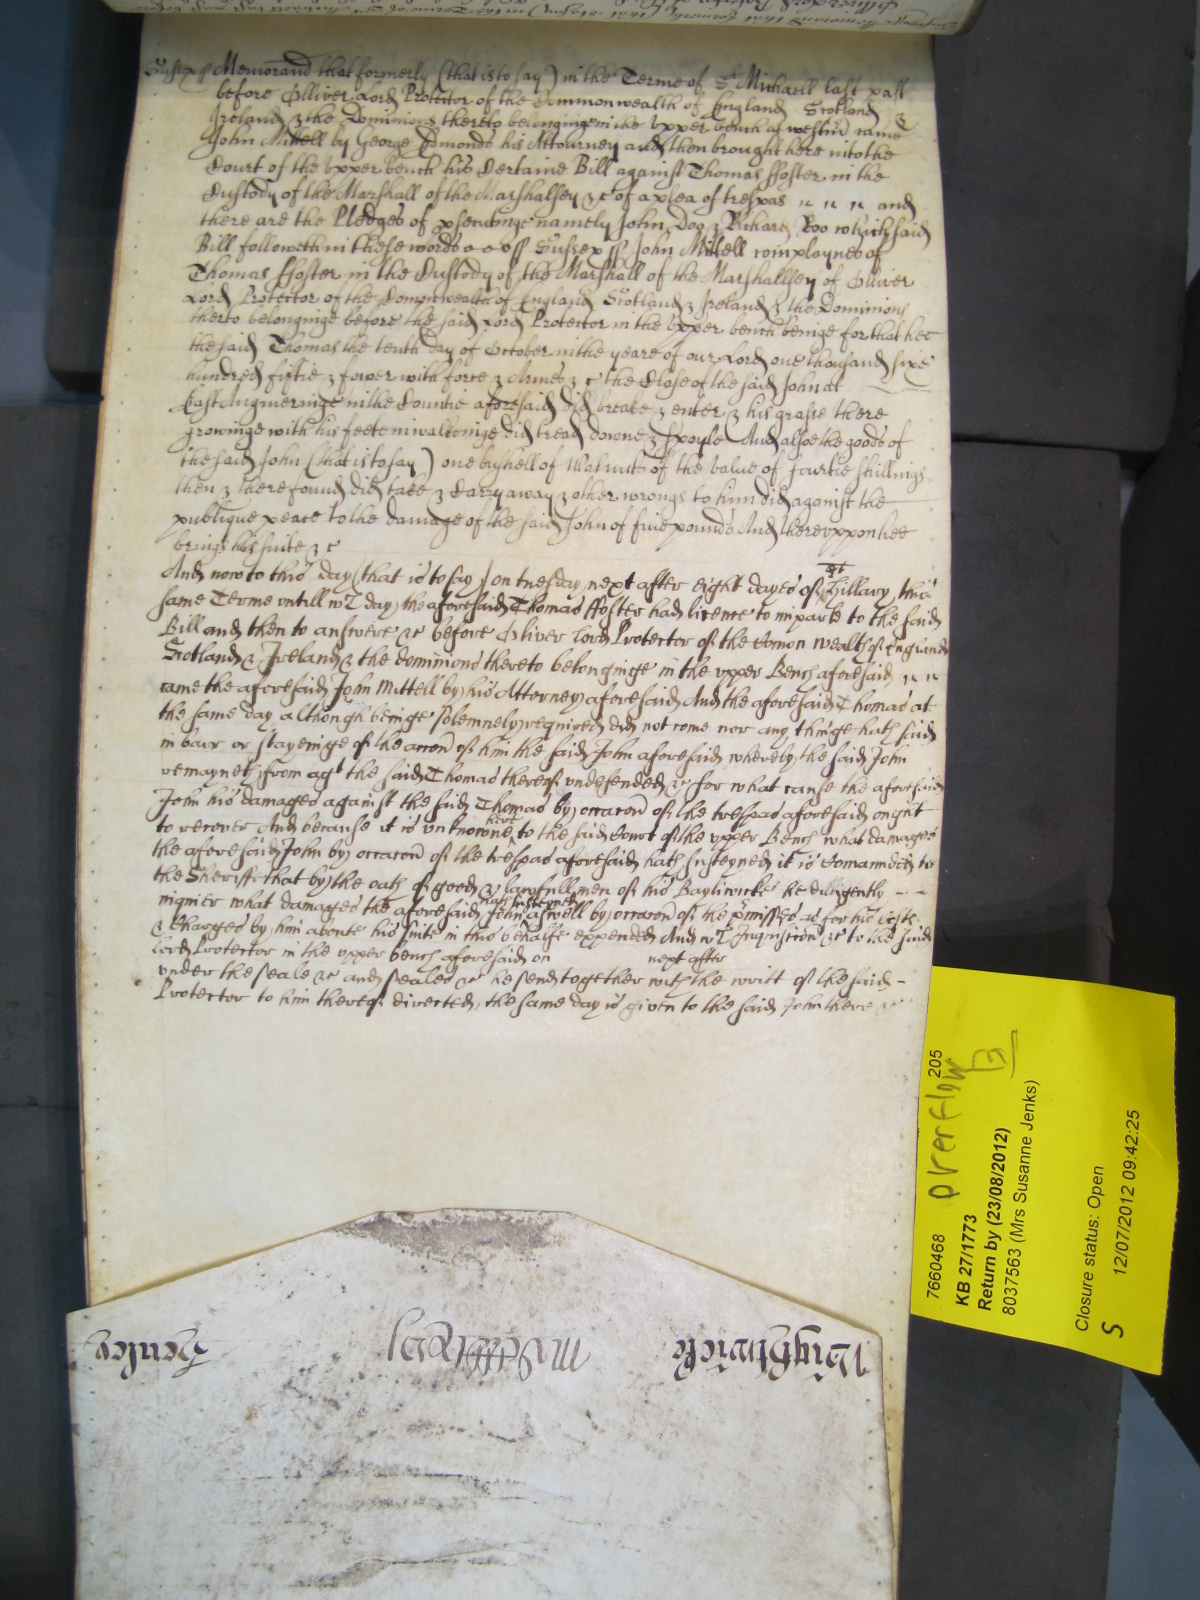 Sussex ss Memorand that formerly (that is to say) in the Terme of St Michaell last past
before Olliver Lord Protector of the Commonwealth of England Scotland &
Ireland & the Dominions thereto belonginge in the upper bench at westm came
John Mittell by George Edmonds his Attourney and then brought here into the
Court of the upper bench his Certaine Bill against Thomas ffoster in the
Custody of the Marshall of the Marshalsey &c of a plea of trespas and
there are the Pledges of psecutinge namely John Doo & Richard Roo which said
Bill followeth in these words ss Sussex ss John Mittell complaynes of
Thomas ffoster in the Custody of the Marshall of the Marshallsey of Olliver
Lord Protector of the Comonwealth of England Scotland & Ireland & the Dominions
therto belonginge before the said Lord Protector in the upper bench beinge for that hee
the said Thomas the tenth day of October in the yeare of our Lord one thousand sixe
hundred fiftie & fower with force & Armes &c the Close of the said John at
East Angmeringe in the Countie aforesaid did breake & enter & his grasse there
growinge with his feete in walkeinge did tread downe & spoyle And alsoe the goods of
the said John (that is to say) one bushell of Walnuts of the value of fourtie shillings
then & there found did take & Cary away & other wrongs to him did against the
publique peace to the damage of the said John of five pounds And thereuppon hee
brings his suite &c
And now to this day (that is to say) on tuesday next after eight dayes of St Hillary this
same Terme untill wch day the aforesaid Thomas ffoster had licence to imparle to the said
Bill and then to answere &c before Oliver lord Protector of the Comon wealth of England
Scotland & Ireland & the dominions thereto belonginge in the upper Bench aforesaid
came the aforesaid John Mittell by his Attorney aforesaid And the aforesaid Thomas at
the same day although beinge solemnely required did not come nor any thinge hath said
in barr or stayeinge of the accon of him the said John aforesaid whereby the said John
remayneth from agt the said Thomas thereof undefended &c for what cause the aforesaid
John his damages against the said Thomas by occacon of the trespas aforesaid ought
to recover And because it is unknowne here to the said Court of the upper Bench what damages
the aforesaid John by occacon of the trespas aforesaid hath susteyned it is Comannded to
the Sheriffe that by the oath of good & lawfull men of his Bayliwicke he dilligently
inquier what damages the aforesaid John hath susteyned aswell by occacon of the pmisses as for his costs
& charges by him aboute his suite in this behalfe expended And wch Inquisicon &c to the said
lord Protector in the upper bench aforesaid on next after
under the seale &c and seales &c he send together with the writt of the said
Protector to him thereof directed, the same day is given to the said John there &c
Wightwicke Henley
7660468 205
overflow
KB 27/1773
Return by (23/08/2012)
8037563 (Mrs Susanne Jenks)
Closure status: Open
S 12/07/2012 09:42:25